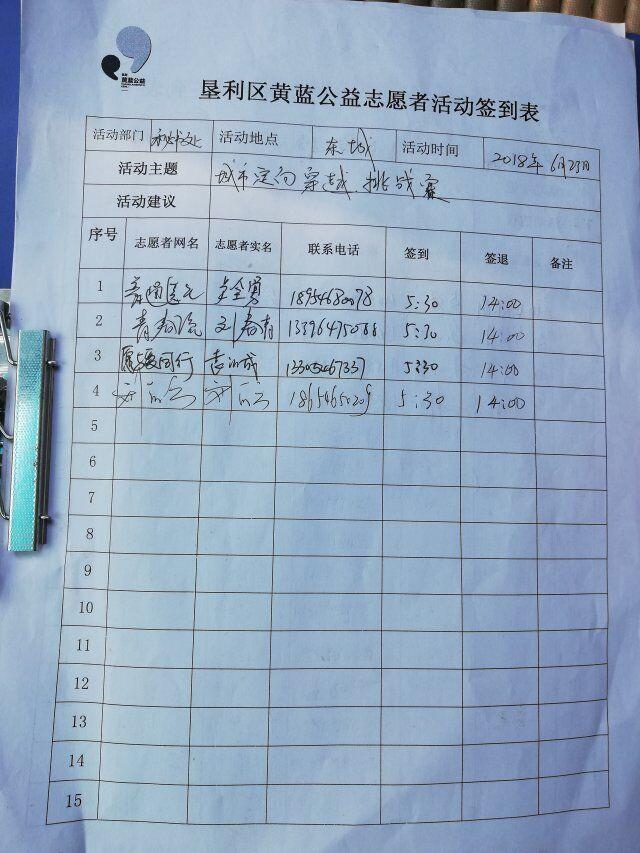 黄蓝公益
垦利区黄蓝公益志愿者活动签到表
活动部门 秘书处 活动地点 东城 活动时间 2018年6月23日
活动主题 城市定向穿越挑战赛
活动建议
序号 志愿者网名 志愿者实名 联系电话 签到 签退 备注
1 18954680078 5:30 14:00
2 13396495088 5:30 14:00
3 同行 13305467337 5:30 14:00
4 5:30 14:00
5
6
7
8
9
10
11
12
13
14
15